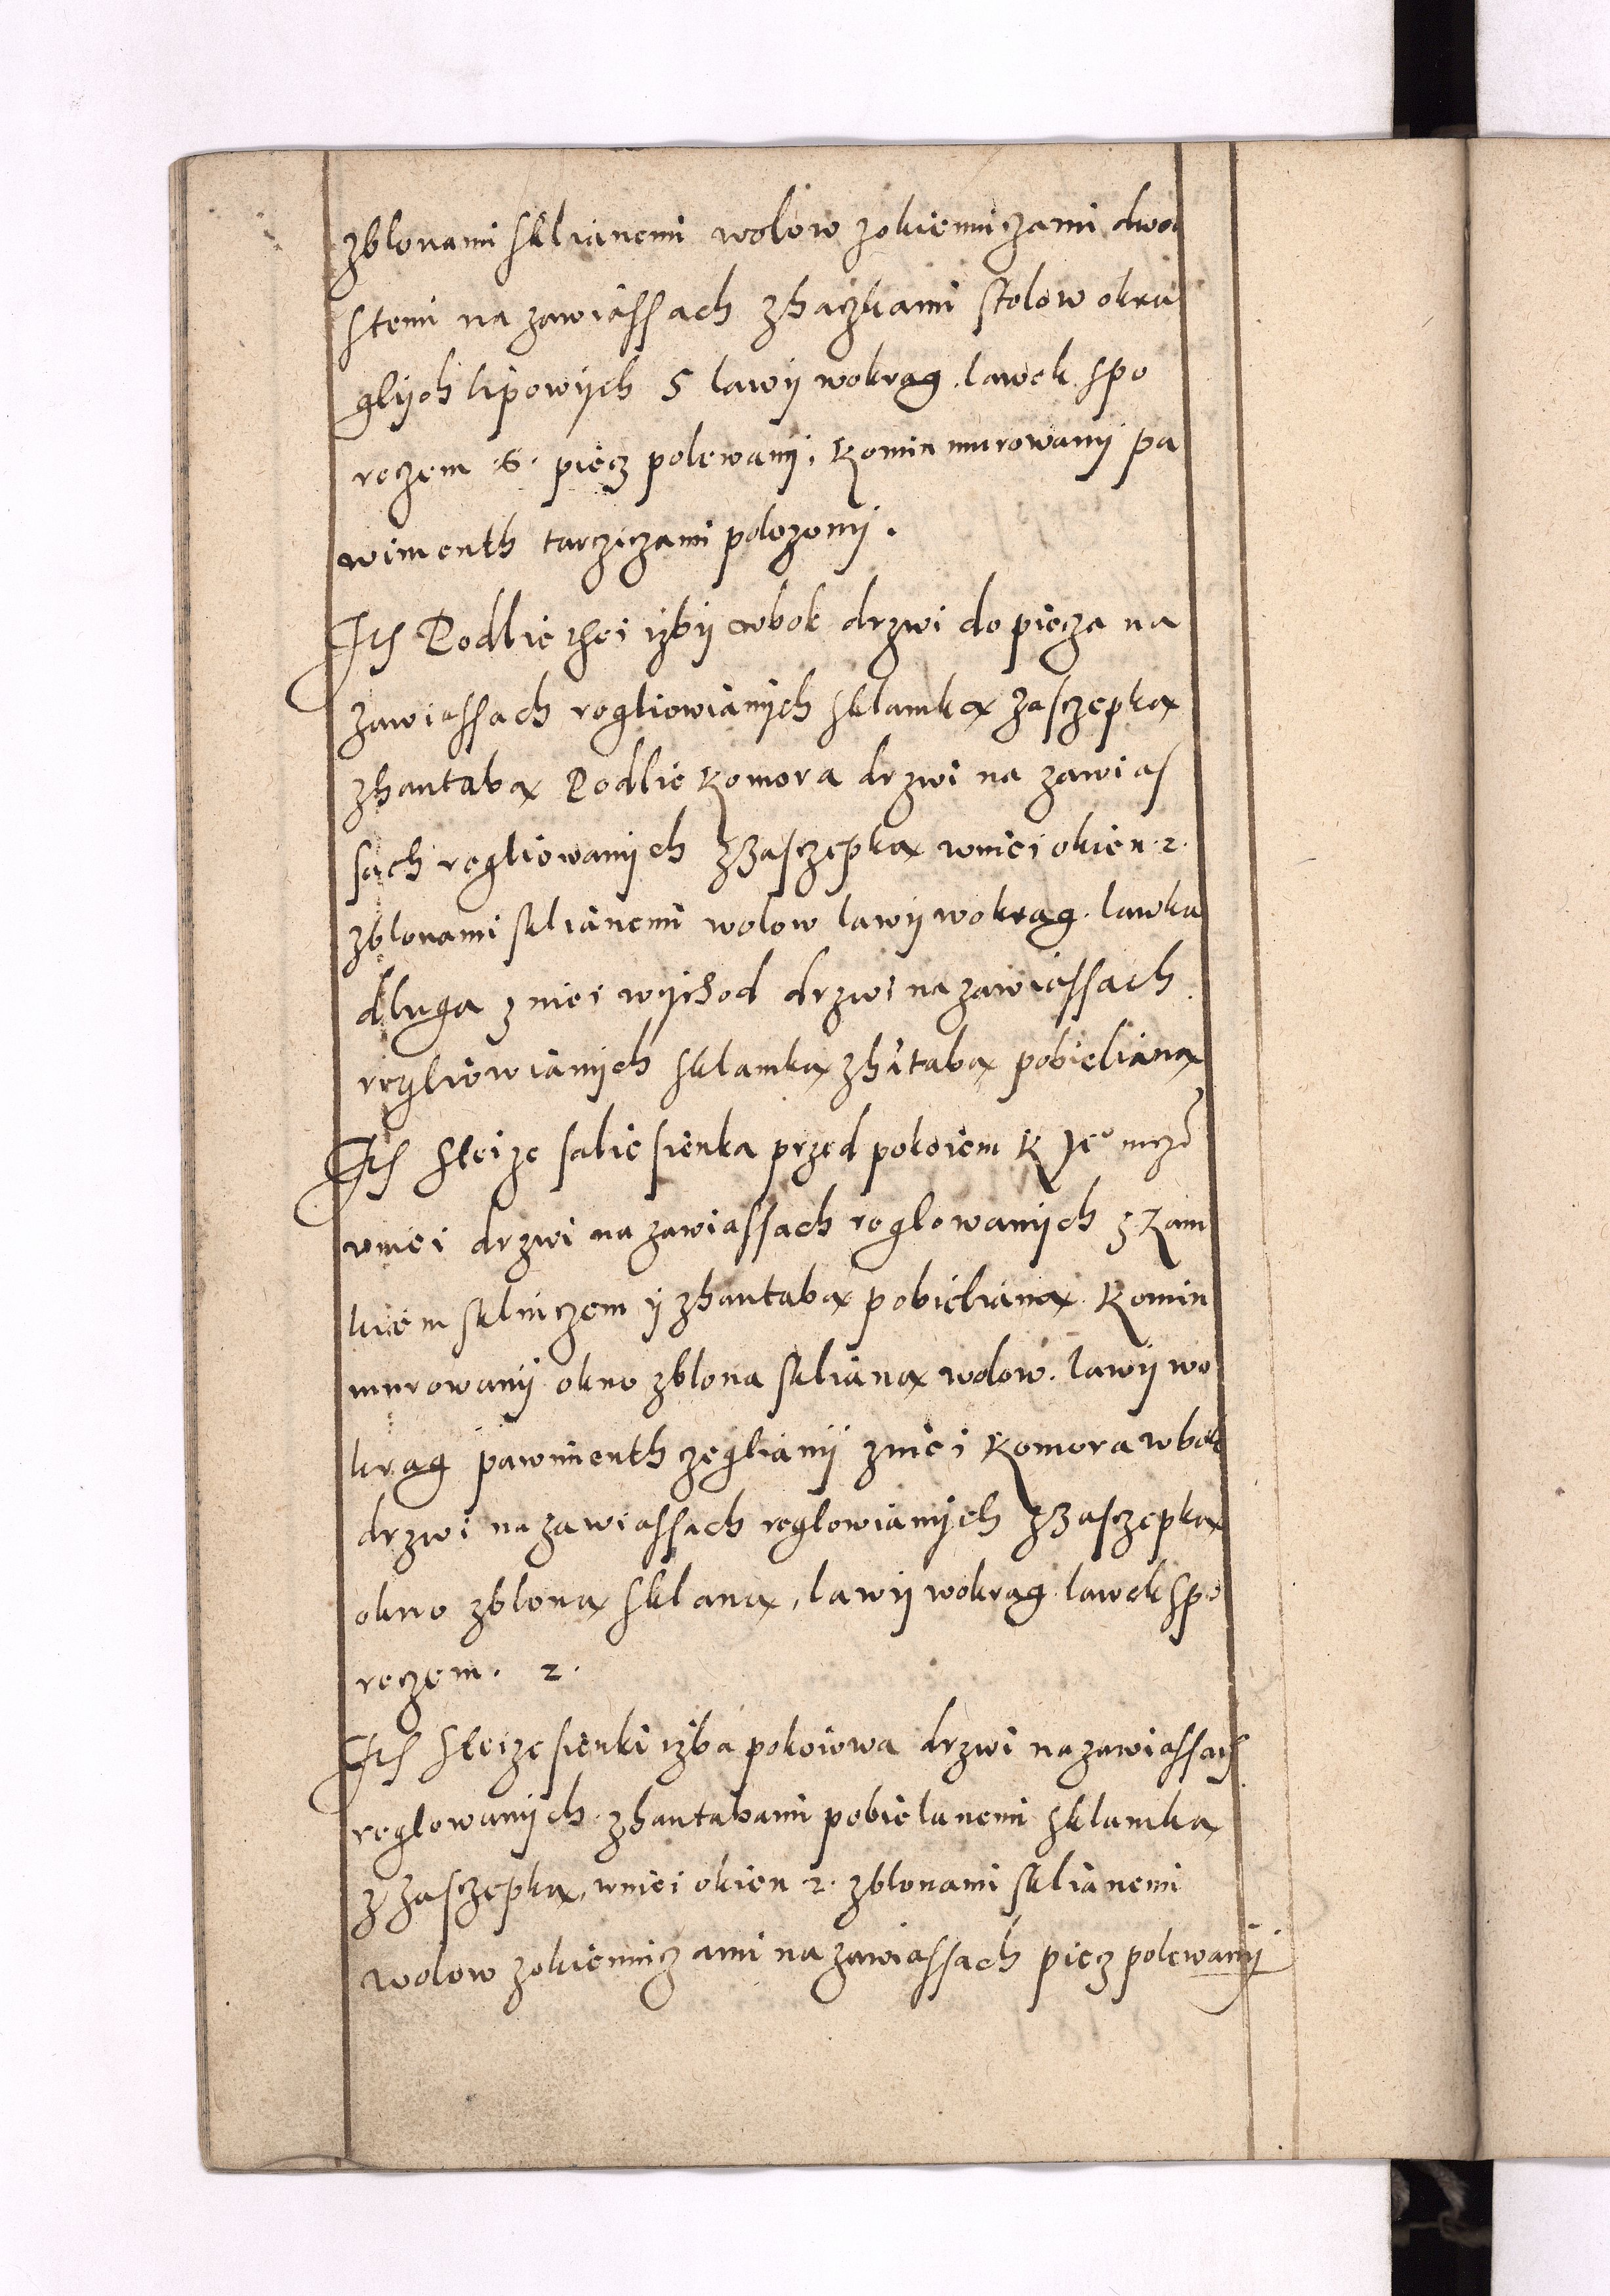 zblonami sklianemi wolow zokienniczami dwoi
stemi na zawiassach zhaczkami stolow okra
glÿch lipowÿch 5 lawÿ wokrag. lawek spo
reczem .6. piecz polewanÿ. Komin murowanÿ pa
wimenth tarcziczami polozonÿ.
Jts Podlie thei izbÿ wbok drzwi do piecza na
zawiassach regliowianÿch sklamka zasczepka
zhantaba Podlie Komora drzwi na zawias
sach regliowanÿch zZasczepka wniei okien .2.
zblonami sklianemi wolow lawÿ wokrag. lawka
dluga z niei wÿchod drzwi na zawiassach
regliowianÿch sklamka zhątaba pobieliana
Jts steize salie sienka przed pokoiem K Je° mczi
wniei drzwi na zawiassach reglowanÿch z Zam
kiem sklinczem ÿ zhantaba pobieliana. Komin
murowanÿ okno zblona skliana wolow. lawÿ wo
krag pawimenth zeglianÿ zniei Komora wbok
drzwi na zawiassach reglowianÿch zZasczepka
okno zblona sklana, lawÿ wokrag. lawek spo
reczem. 2.
Jts steize sienki izba pokoiowa drzwi na zawiassach
reglowanÿch. zhantabami pobielanemi sklamka
z zasczepka, wniei okien 2. zblonami sklianemi
wolow zokienniczami na zawiassach piecz polewanÿ